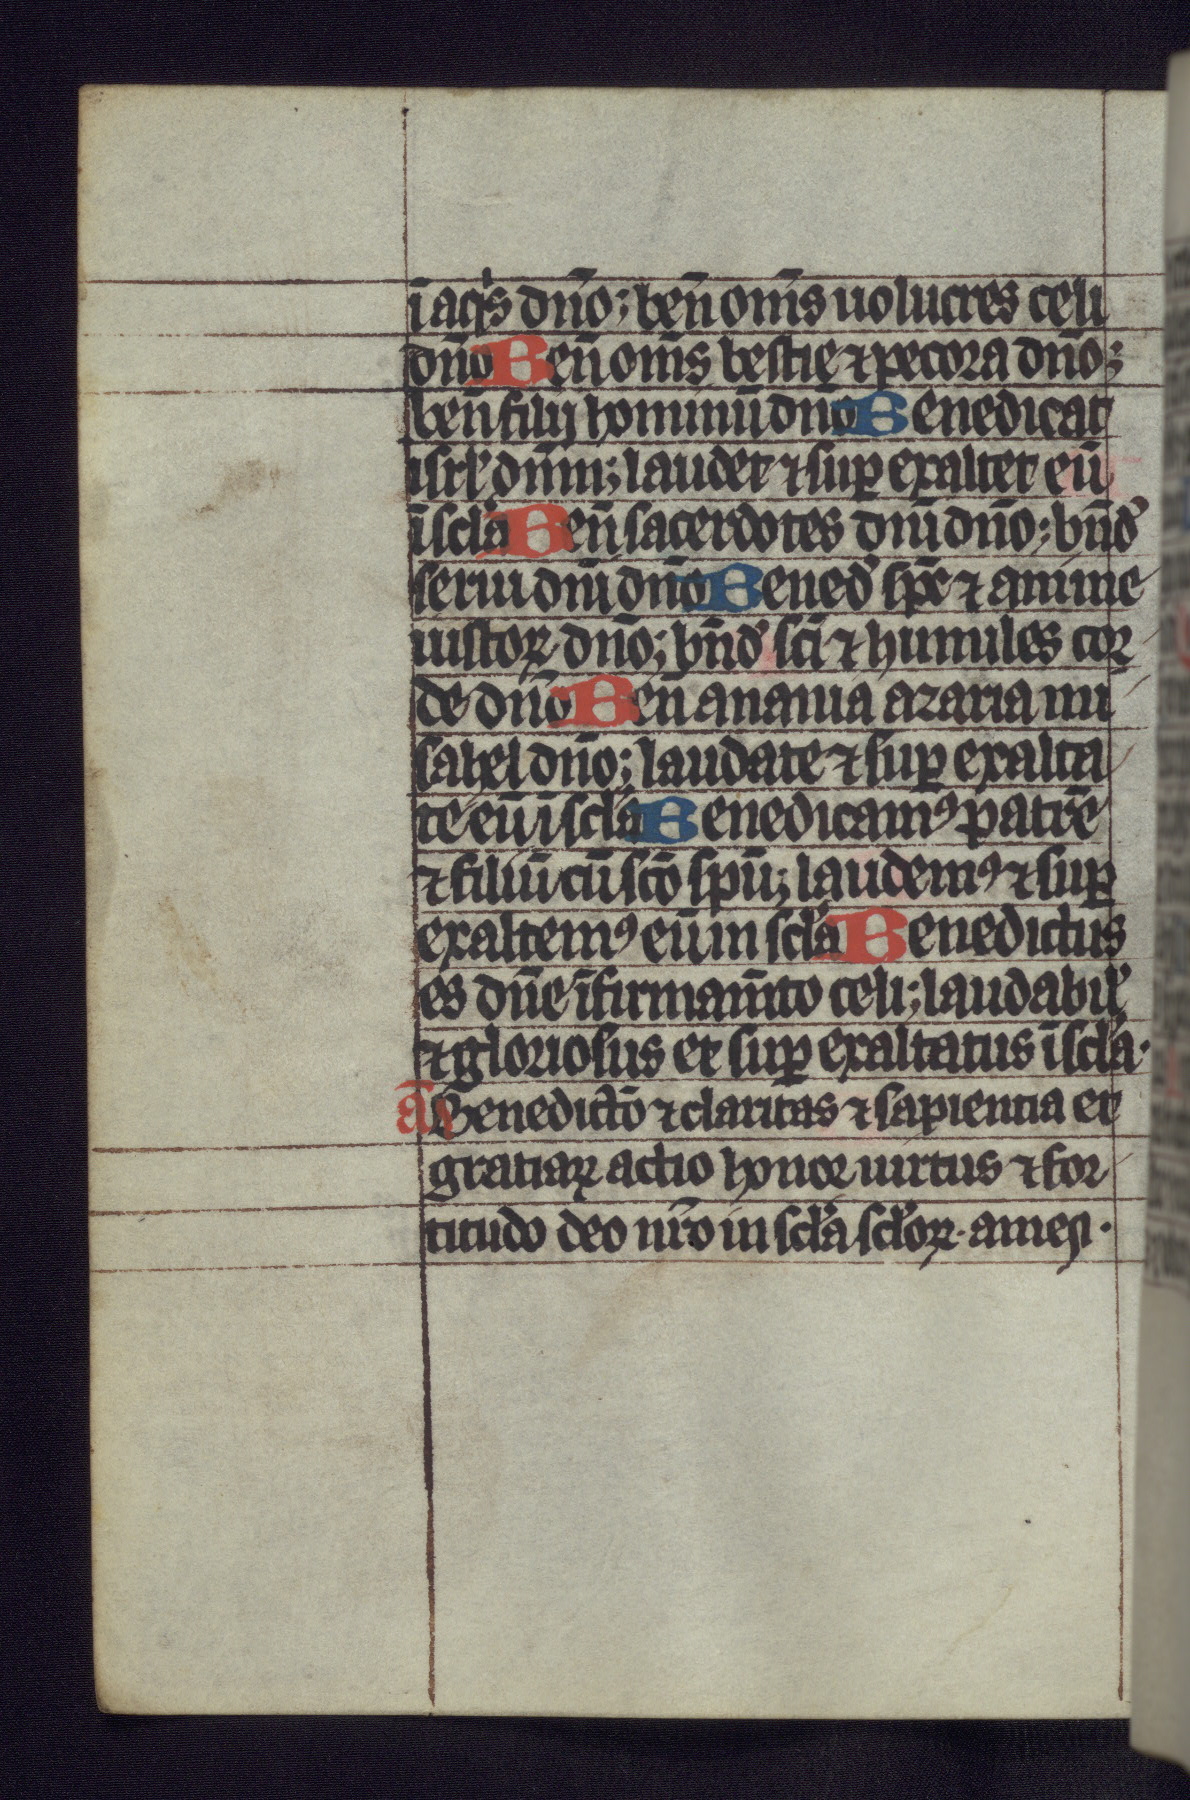 ī aq̇s dn̄o; ben̄ om̄s uolucres celi
dn̄o Ben̄ om̄s bestię ⁊ pecora dn̄o;
ben̄ filij hominū dn̄o Benedicat
isrl̓ dn̄m; laudet ⁊ suꝑ exaltet eū
ī scl̓a Ben̄ sacerdotes dn̄i dn̄o; bn̄d̓
serui dn̄i dn̄o Bened̓ sp̄c ⁊ anime
iustoꝝ dn̄o; bn̄d̓ sc̄i ⁊ humiles cor
de dn̄o Ben̄ anania azaria mi
sahel dn̄o; laudate ⁊ suꝑ exalta
te eū ī scl̓a Benedicamꝰ patrē
⁊ filiū cū sc̄o sp̄u; laudemꝰ ⁊ suꝑ
exaltemꝰ eū in scl̓a Benedictus
es dn̄e ī firmam̄to celi; laudabil̓
⁊ gloriosus et suꝑ exaltatus ī scl̓a.
a᷈ Benedictō ⁊ claritas ⁊ sapientia et
gratiaꝝ actio honor uirtus ⁊ for
titudo deo nr̄o in scl̓a scl̓oꝝ. amen.